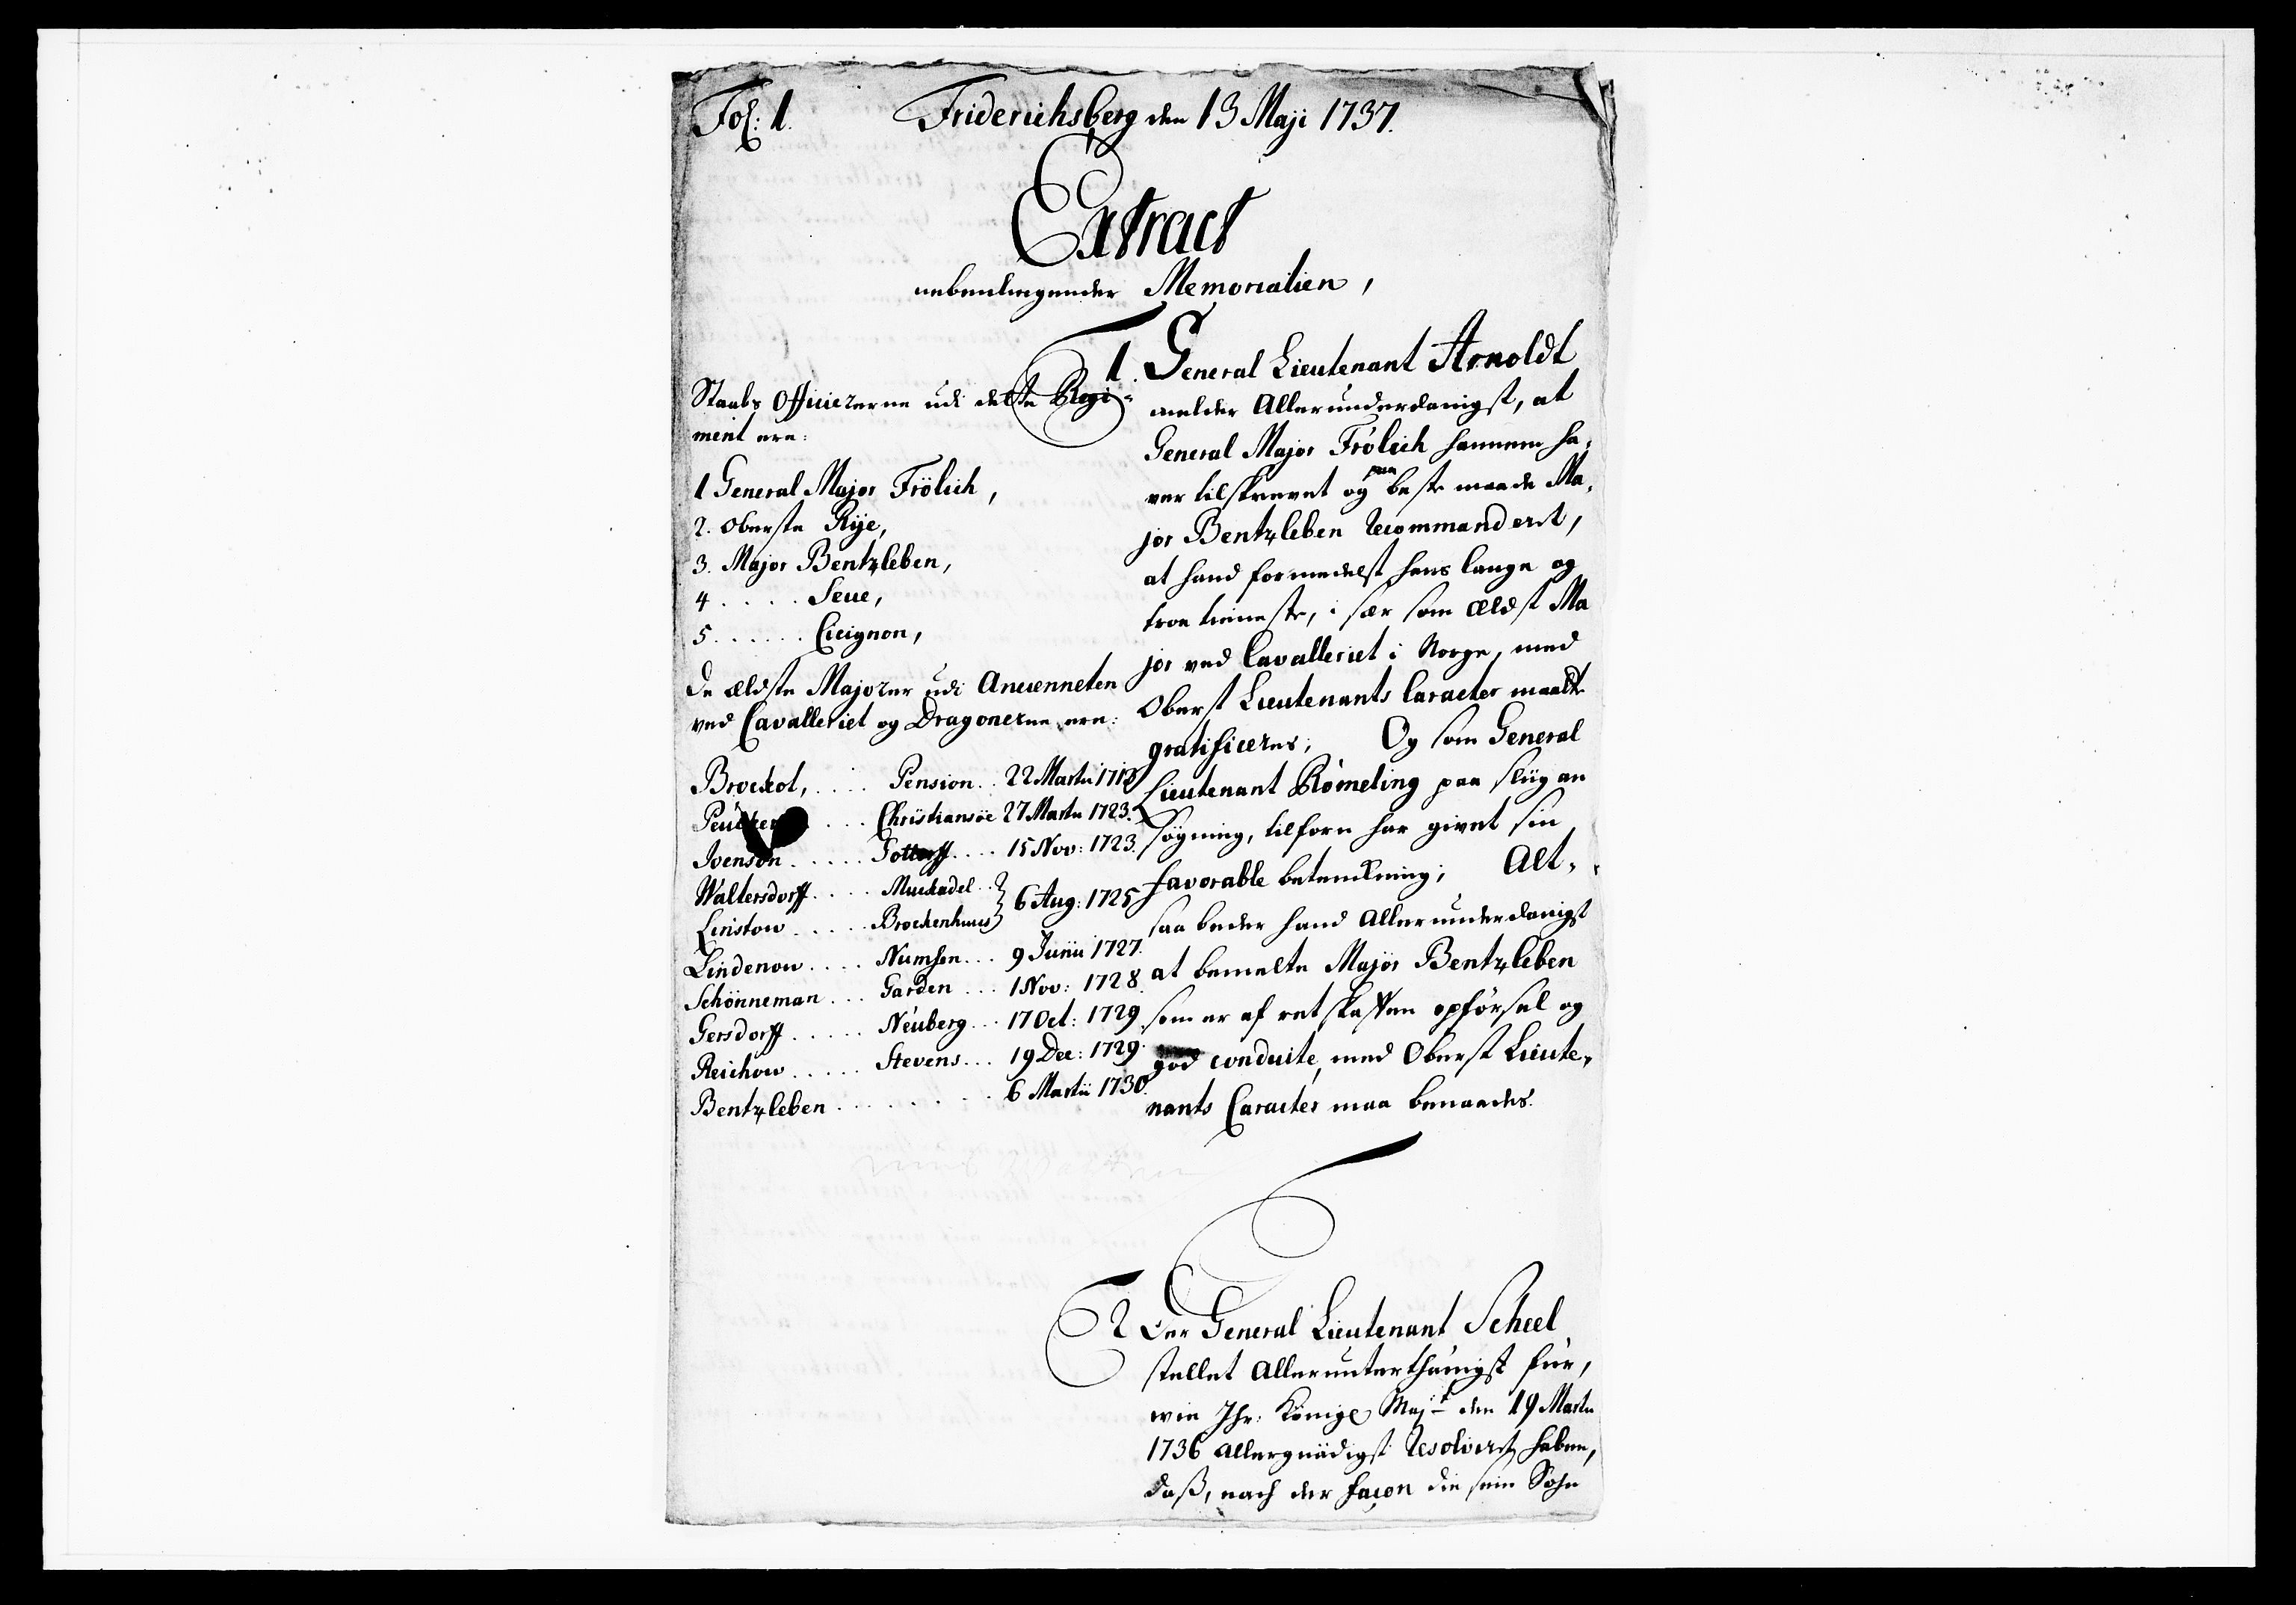 Fol: 1.
Friderichsberg den 13 Maji 1737.
Extract
nebenliegender Memorialien,
Staabs Officizerne udi dette Regi-
ment ere:
1 General Major Frölich,
2. Oberste Rÿe,
3. Major Bentzleben,
4 . . . . Seue,
5 . . . . . Cicignon,
De ældste Majorer udi Ancienneten
ved Cavalleriet og Dragonerne ere:
Brockot, . . . . Pension . . 22 Martii 1718
. . . Christiansöe 27 Martii 1723.
Ivenson . . . . . Gottorff . . . . 15 Nov: 1723.
Waltersdorff . . . . Muckadel . .
Linstow . . . . . Brockenhuus } 6 Aug: 1725
Lindenow . . . . Numsen . . . 9 Junii 1727.
Schönneman . . . Garden . . . 1 Nov: 1728.
Gersdorff . . . . . Neuberg . . . 17 Oct: 1729.
Reichow . . . . . Stevens . . . 19 Dec: 1729.
Bentzleben . . . . . . . . 6 Martii 1730.
1. General Lieutenant Arnoldt
melder Allerunderdanigst, at
General Major Frölich hannem ha-
ver tilskrevet og paa beste maade Ma-
jor Bentzleben recommanderet,
at hand formedelst hans lange og
troe tieneste, i sær som ældst Ma
jor ved Cavalleriet i Norge, med
Oberst Lieutenants Caracter maatte
gratificeres; Og som General
Lieutenant Römeling paa sliig an
søgning, tilforn har givet sin
favorable betenkning; Alt-
saa beder hand Allerunderdanigst
at bemelte Major Bentzleben
som er af retskaffen opförsel og
god conduite, med Oberst Lieute-
nants Caracter maa benaades.
2 Der General Lieutenant Scheel
stellet Allerunterthänigst für,
wie Ihr: Königl Majt den 19 Martii
1736 Allergnädigst resolviret haben,
daß, nach der façon die sein Sohn